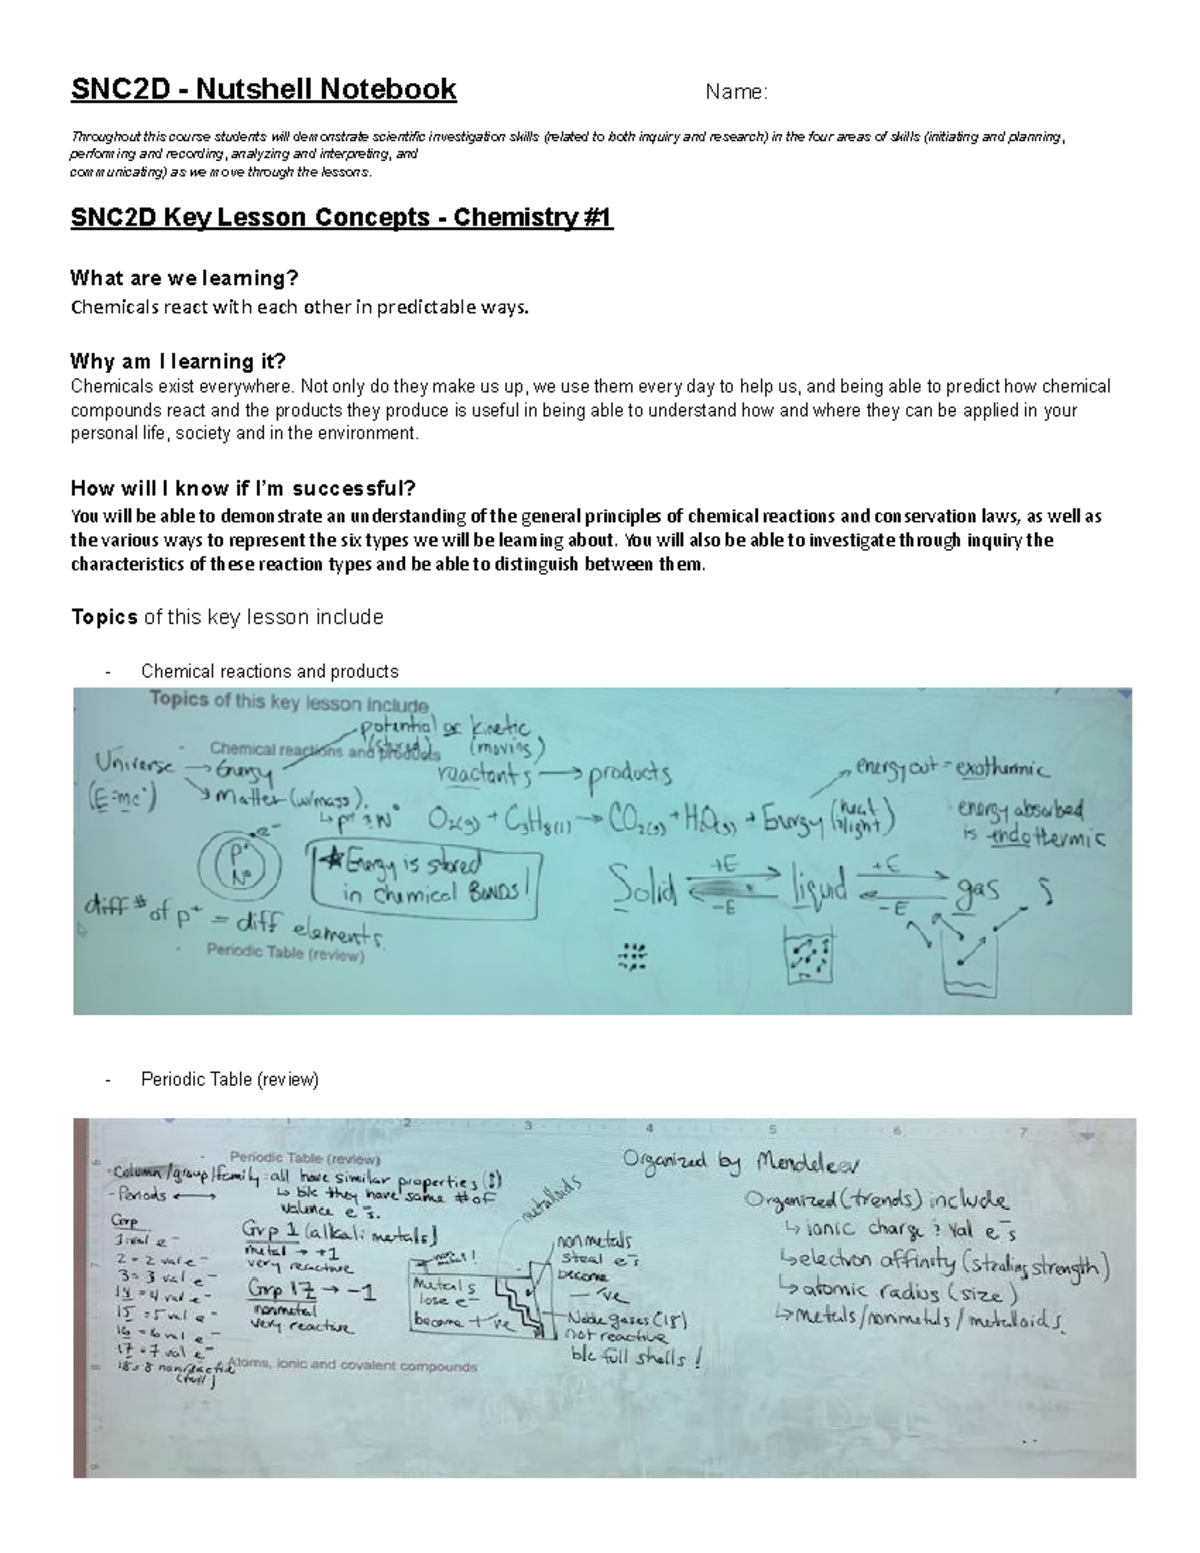 SNC2D - Nutshell Notebook Name:
Throughout this course students will demonstrate scientific investigation skills (related to both inquiry and research) in the four areas of skills (initiating and planning,
performing and recording, analyzing and interpreting, and
communicating) as we move through the lessons.
SNC2D Key Lesson Concepts - Chemistry #1
What are we learning?
Chemicals react with each other in predictable ways.
Why am I learning it?
Chemicals exist everywhere. Not only do they make us up, we use them every day to help us, and being able to predict how chemical
compounds react and the products they produce is useful in being able to understand how and where they can be applied in your
personal life, society and in the environment.
How will I know if I'm successful?
You will be able to demonstrate an understanding of the general principles of chemical reactions and conservation laws, as well as
the various ways to represent the six types we will be learning about. You will also be able to investigate through inquiry the
characteristics of these reaction types and be able to distinguish between them.
Topics of this key lesson include
- Chemical reactions and products
Topics of this key lesson include
potential or kinetic
(stored) (moving)
- Chemical reactions and products
Universe → Energy
(E=mc²)
Matter (w/mass).
↳ p+ & N°
reactants → products
energy out = exothermic
O₂(g) + C₃H₈(l) → CO₂(g) + H₂O(g) + Energy (heat & light)
energy absorbed
is endothermic
e-
p+
N°
★ Energy is stored
in chemical BONDS!
Solid +E -E liquid +E -E gas
diff # of p+ = diff elements.
- Periodic Table (review)
- Periodic Table (review)
2 3 4 5 6 7
- Periodic Table (review)
Organized by Mendeleev
- Column/group/family - all have similar properties (↕)
↳ b/c they have same # of
valence e-s.
- Periods ↔
Grp
1 = 1 val e-
2 = 2 val e-
3 = 3 val e-
14 = 4 val e-
15 = 5 val e-
16 = 6 val e-
17 = 7 val e-
18 = 8 nonreactive
(full)
Grp 1 (alkali metals)
metal → +1
very reactive
Grp 17 → -1
nonmetal
very reactive
metalloids
Metals
lose e-
become +'ve
nonmetals
steal e-s
become
-'ve
Noble gases (18)
not reactive
b/c full shells!
Organized (trends) include
↳ ionic charge & val e-s
↳ electron affinity (stealing strength)
↳ atomic radius (size)
↳ metals/nonmetals/metalloids.
Atoms, ionic and covalent compounds